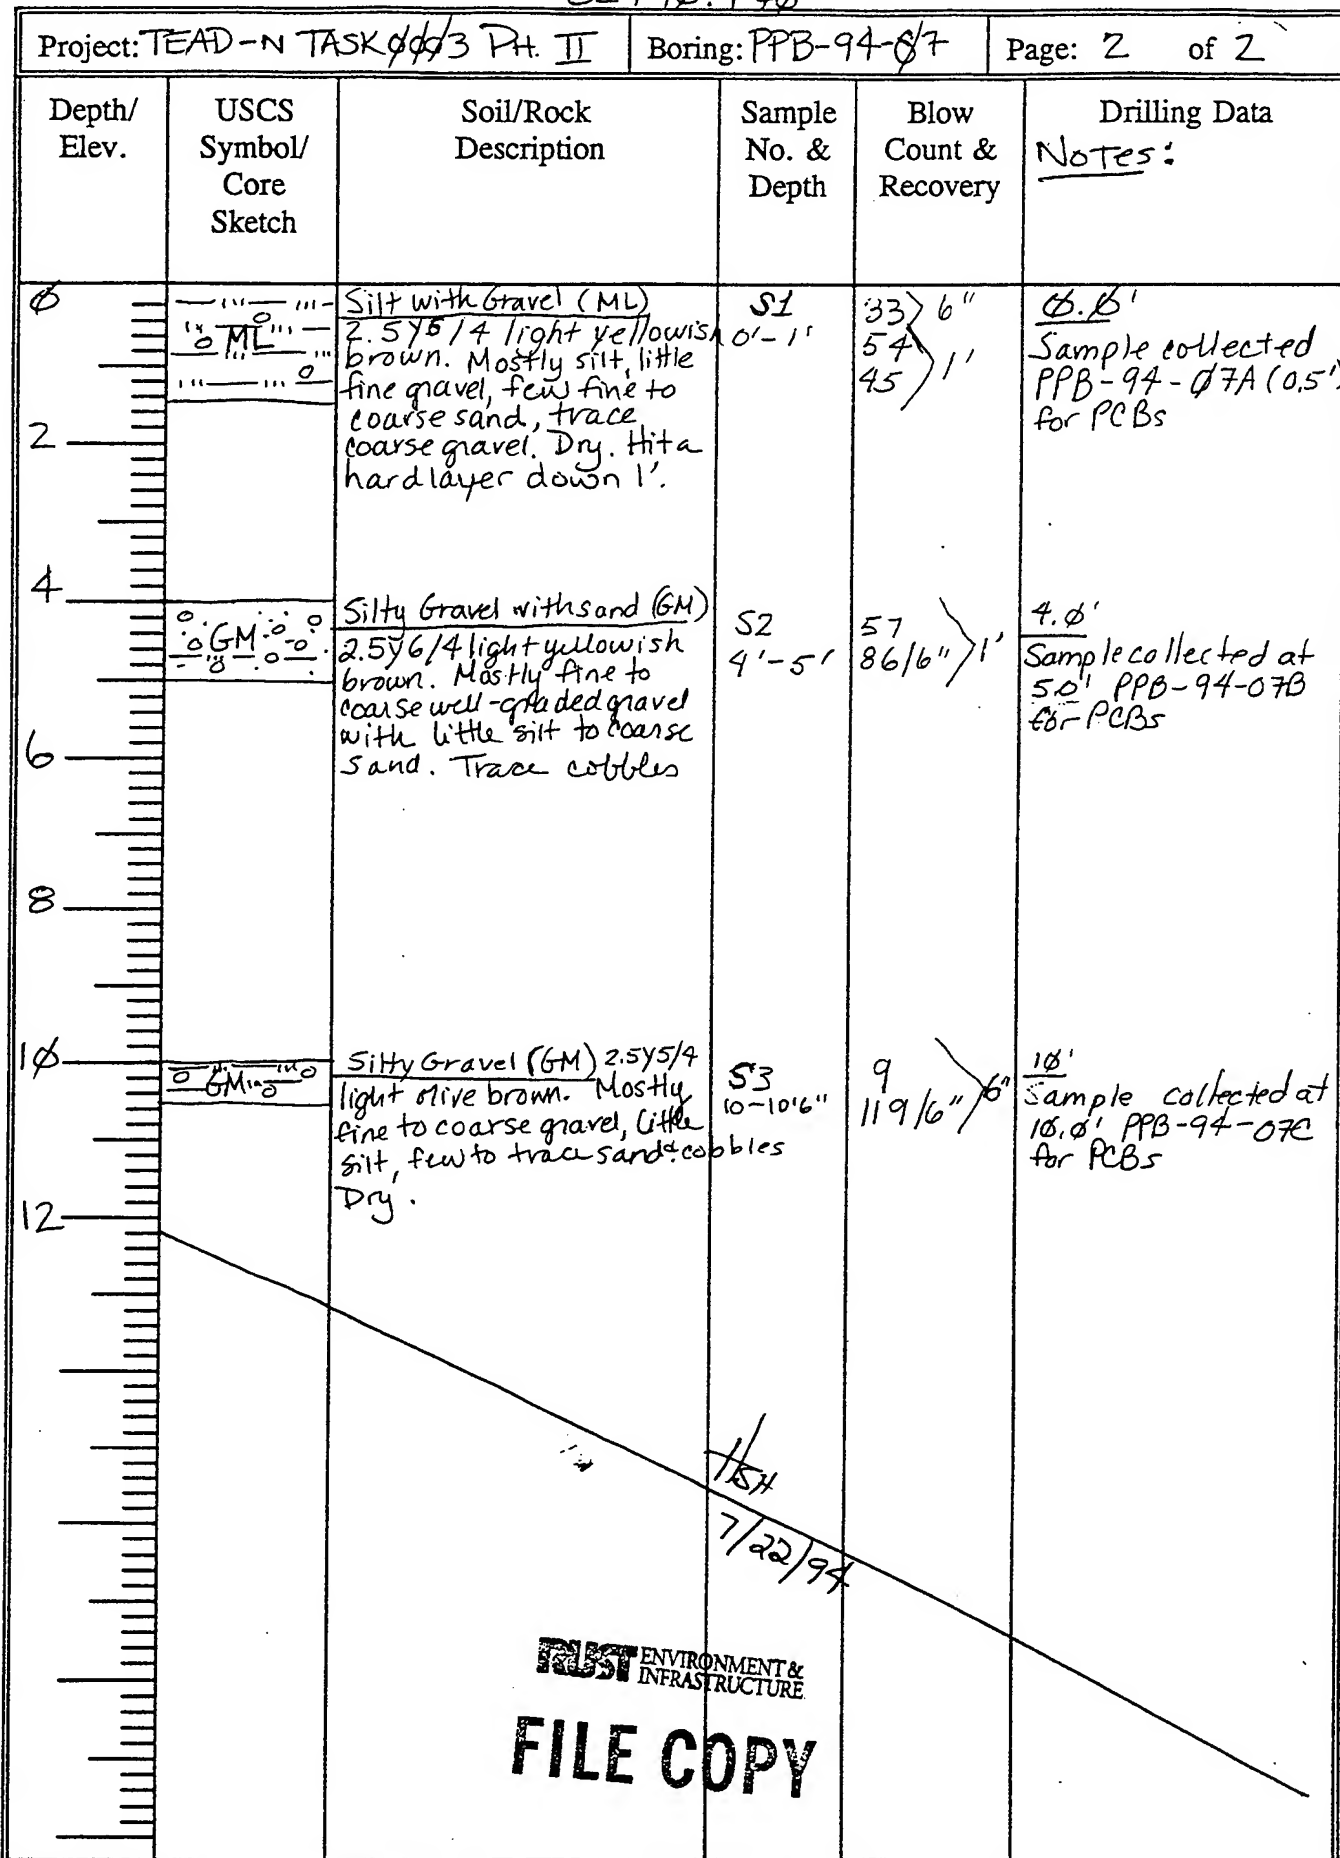 Project: TEAD-N TASK ØØØ3 PH. II Boring: PPB-94-Ø7 Page: 2 of 2
Depth/ Elev.
USCS Symbol/ Core Sketch
Soil/Rock Description
Sample No. & Depth
Blow Count & Recovery
Drilling Data
Notes:
Ø
2
4
6
8
1Ø
12
ML
Silt with Gravel (ML)
2.5Y6/4 light yellowish
brown. Mostly silt, little
fine gravel, few fine to
coarse sand, trace
coarse gravel. Dry. Hit a
hard layer down 1'.
S1
0'-1'
33 6"
54
45 1'
Ø.Ø'
Sample collected
PPB-94-Ø7A (0.5')
for PCBs
GM
Silty Gravel with sand (GM)
2.5y6/4 light yellowish
brown. Mostly fine to
coarse well-graded gravel
with little silt to coarse
sand. Trace cobbles
S2
4'-5'
57
86/6" 1'
4.Ø'
Sample collected at
5.0' PPB-94-07B
for PCBs
GM
Silty Gravel (GM) 2.5Y5/4
light olive brown. Mostly
fine to coarse gravel, little
silt, few to trace sand & cobbles
Dry.
S3
10-10'6"
9
119/6" 6"
1Ø'
Sample collected at
1Ø.Ø' PPB-94-07C
for PCBs
7/22/94
RUST ENVIRONMENT &
INFRASTRUCTURE
FILE COPY